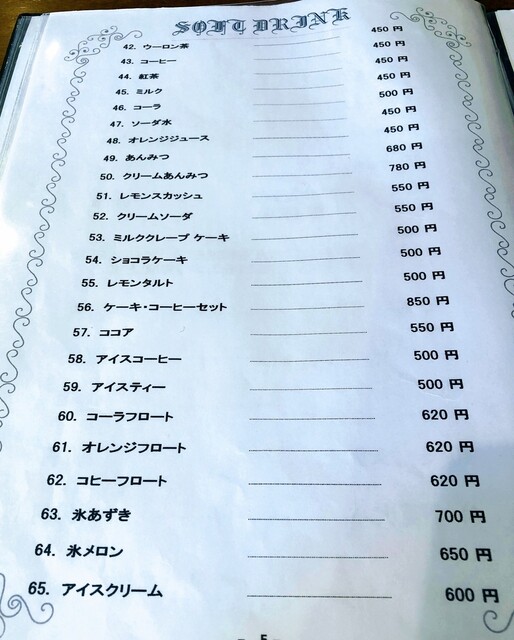 SOFT DRINK
42. ウーロン茶 450 円
43. コーヒー 450 円
44. 紅茶 450 円
45. ミルク 450 円
46. コーラ 500 円
47. ソーダ水 450 円
48. オレンジジュース 450 円
49. あんみつ 680 円
50. クリームあんみつ 780 円
51. レモンスカッシュ 550 円
52. クリームソーダ 550 円
53. ミルククレープ ケーキ 500 円
54. ショコラケーキ 500 円
55. レモンタルト 500 円
56. ケーキ・コーヒーセット 850 円
57. ココア 550 円
58. アイスコーヒー 500 円
59. アイスティー 500 円
60. コーラフロート 620 円
61. オレンジフロート 620 円
62. コヒーフロート 620 円
63. 氷あずき 700 円
64. 氷メロン 650 円
65. アイスクリーム 600 円
- 5 -